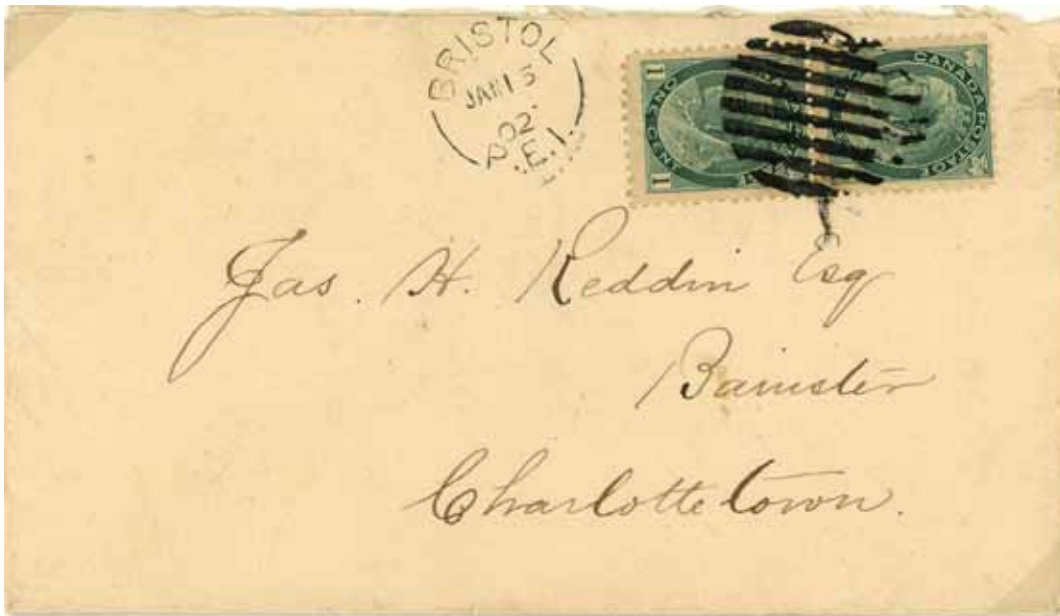 BRISTOL
JAN 13
02
P.E.I.
1 ONE CENT 1
CANADA POSTAGE
Jas. H. Reddin Esq
Barrister
Charlottetown.